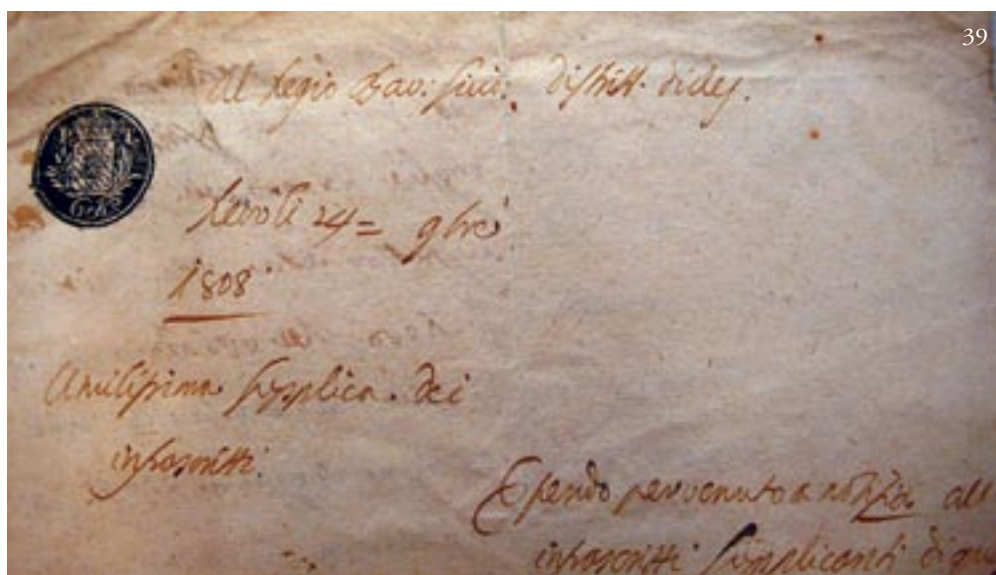 39
Al Regio Bav: Giud: Distrett. di
24 = 9bre
1808
Umilissima Supplica dei
infrascritti.
Essendo pervenuto a notizia
infrascritti Supplicanti di